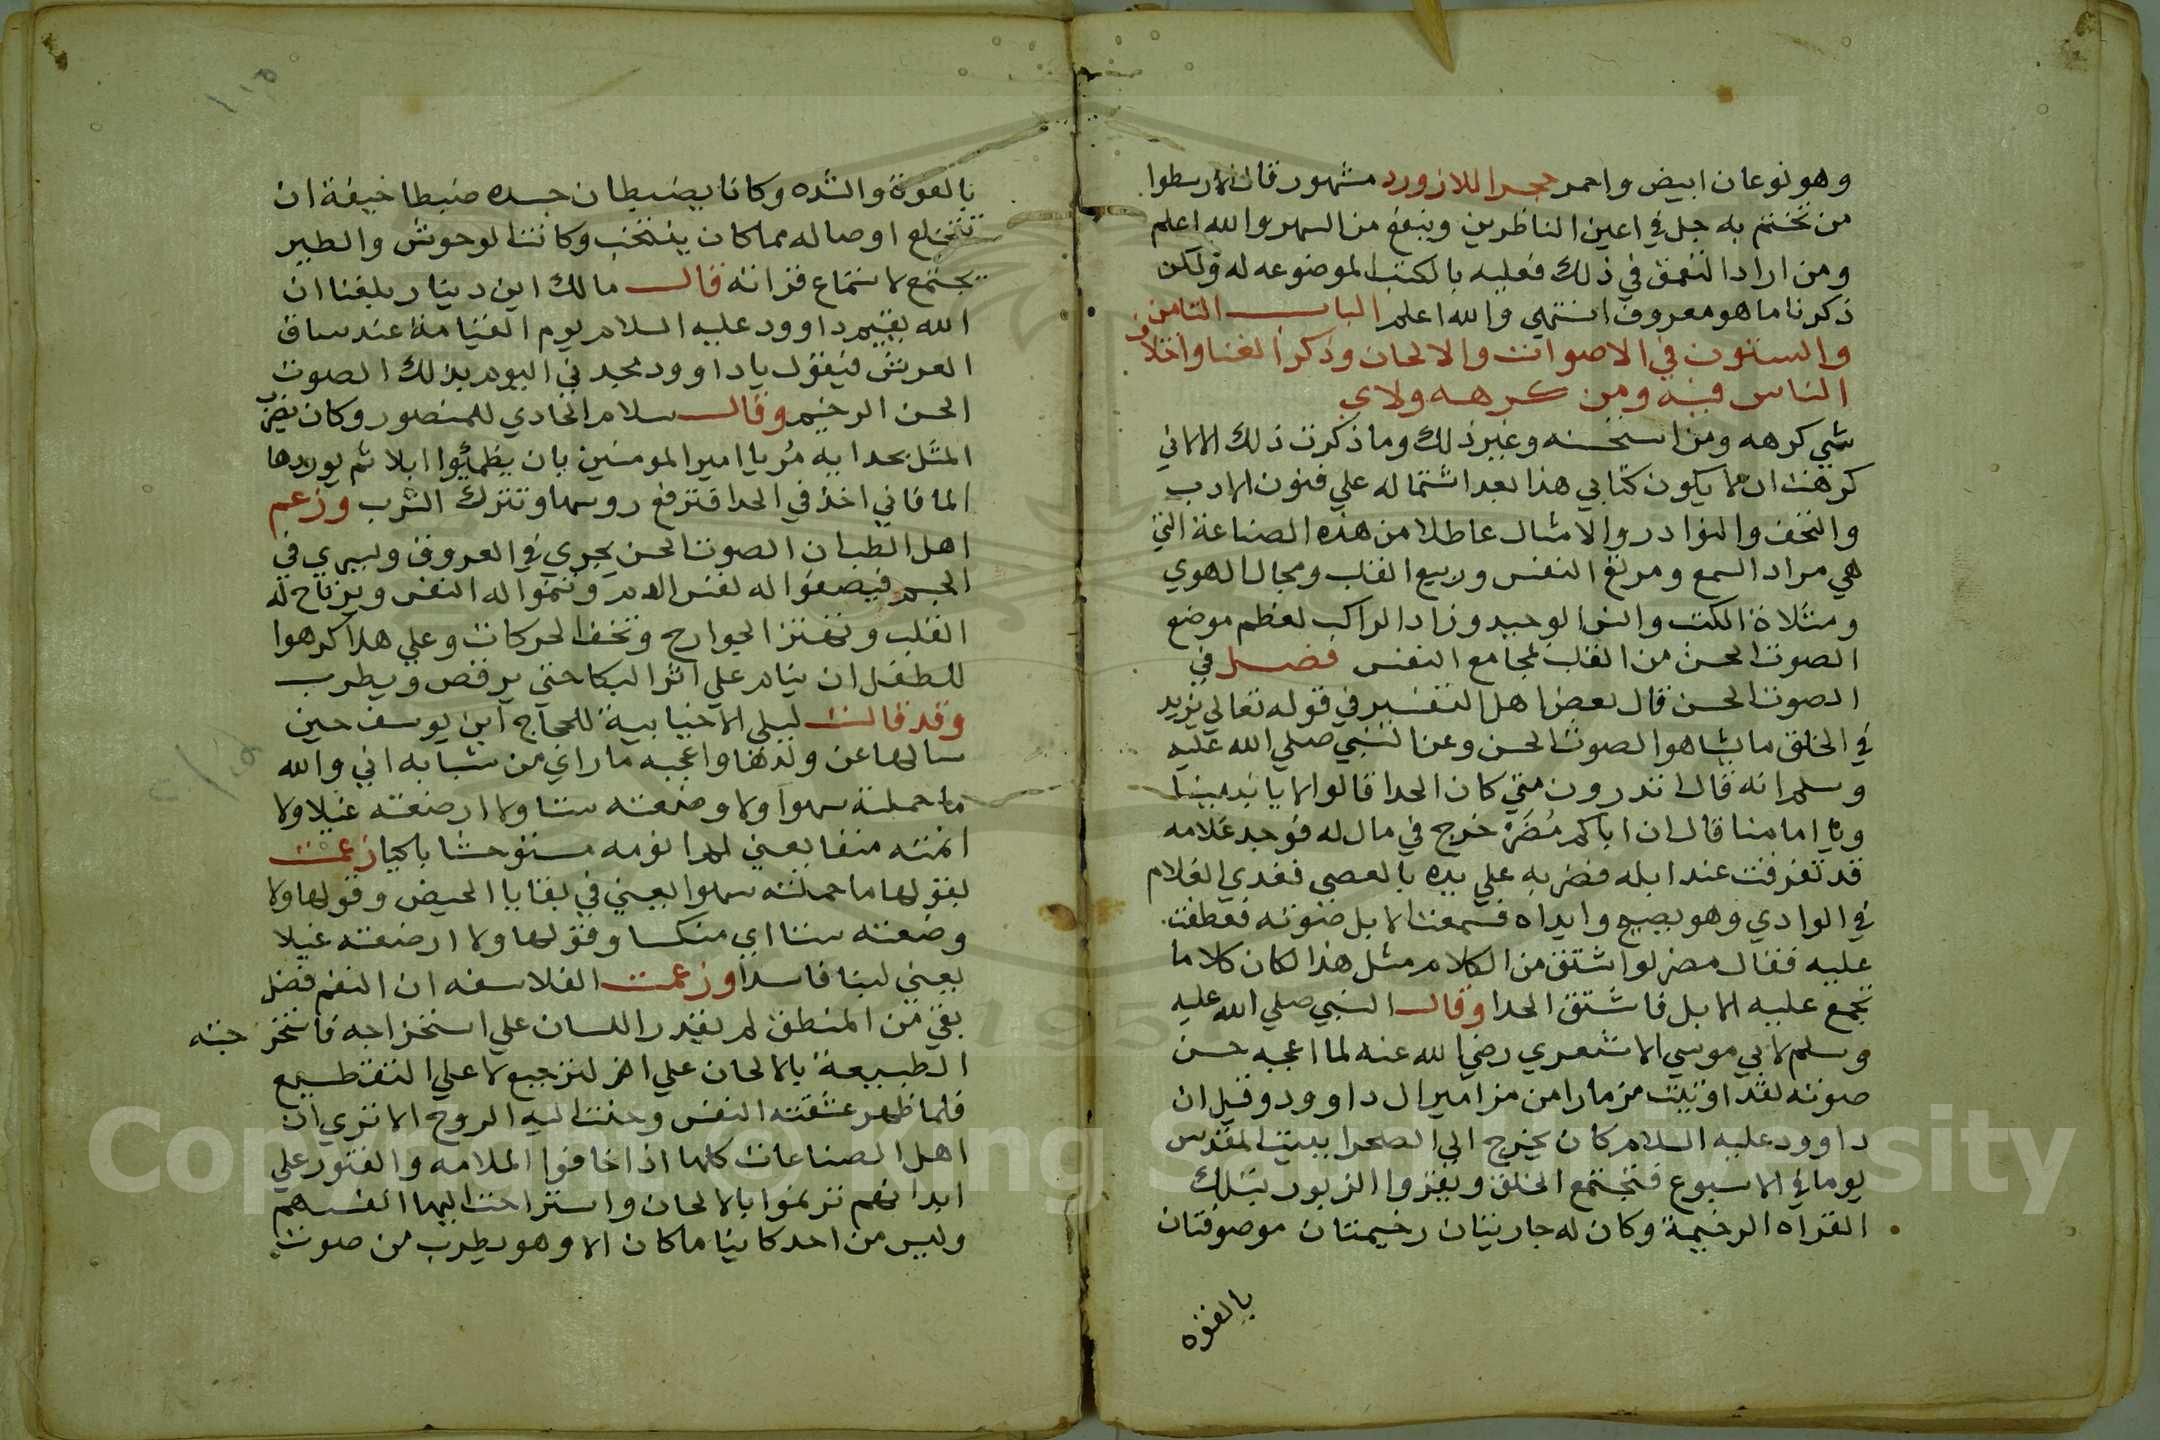 وهو نوعان ابيض واحمر حجر اللازورد مشهور قال الارسطوا
من تختم به جل في اعين الناظرين وينفع من السهر والله اعلم
ومن اراد التعمق في ذلك فعليه بالكتب الموضوعه له ولكن
ذكرنا ما هو معروف انتهي والله اعلم الباب الثامن
والستون في الاصوات والالحان وذكر الغنا واختلاف
الناس فيه ومن كرهه ولاي
شي كرهه ومن استحسنه وغير ذلك وما ذكرت ذلك الا لاني
كرهت ان لا يكون كتابي هذا بعد اشتماله علي فنون الادب
والتحف والنوادر والامثال عاطلا من هذه الصناعة التي
هي مراد السمع ومرتع النفس وربيع القلب ومجال الهوي
ومثلاة الكئب وانس الوحيد وزاد الراكب لعظم موضع
الصوت الحسن من القلب لمجامع النفس فصل في
الصوت الحسن قال بعض اهل التفسير في قوله تعالي يزيد
في الخلق ما يشا هو الصوت الحسن وعن النبي صلي الله عليه
وسلم انه قال اتدرون متي كان الحدا قالوا لا يا نبينا
ويا امامنا قال ان اباكم مُضَرْ خرج في مال له فوجد غلامه
قد تفرقت عند ابله فضربه علي يده بالعصي فغدي الغلام
في الوادي وهو يصيح وايداه فسمعت الابل صوته فعطفت
عليه فقال مضر لو اشتق من الكلام مثل هذا لكان كلاما
تجمع عليه الابل فاشتق الحدا وقال النبي صلي الله عليه
وسلم لابي موسي الاشعري رضي الله عنه لما اعجبه حسن
صوته لقد اوتيت مزمارا من مزامير ال داوود وقيل ان
داوود عليه السلام كان يخرج الي الصحرا ببيت المقدس
يوما في الاسبوع فتجتمع الخلق ويقروا الزبور بتلك
القراه الرخيمة وكان له جاريتان رخيمتان موصوفتان
بالقوه
بالقوة والشده وكانا يضبطان جسده ضبطا خيفة ان
تتخلع اوصاله مما كان ينتحب وكانت الوحوش والطير
يجتمع لاستماع قرائه قال مالك ابن دينار بلغنا ان
الله يقيم داوود عليه السلام يوم القيامة عند ساق
العرش فيقول يا داوود مجدني اليوم بذلك الصوت
الحسن الرخيم وقال سلام الحادي للمنصور وكان يضرب
المثل بحدايه مُر يا امير المومنين بان يظمئوا ابلا ثم يوردها
الما فاني اخذ في الحدا فترفع روسها وتترك الشرب وزعم
اهل الطب ان الصوت الحسن يجري في العروق ويسري في
الجسم فيصفوا له لفس الدم وتنموا له النفس ويرتاح له
القلب وتهتز الجوارح وتخف الحركات وعلي هذا كرهوا
للطفل ان ينام علي اثر البكا حتي يرقص ويطرب
وقد قالت ليلي الاخيابية للحجاج ابن يوسف حين
سالها عن ولدها واعجبه ما راي من شبابه اني والله
ما حملته سهوا ولا وضعته ستنا ولا ارضعته غيلا ولا
انمته منفا يعني لم انومه مستوحشا باكيا زعمت
بقولها ما حملته سهوا يعني في بقايا الحيض وقولها ولا
وضعته ستنا اي منكسا وقولها ولا ارضعته غيلا
يعني لبنا فاسدا وزعمت الفلاسفه ان النغم فضل
بقي من المنطق لم يقدر اللسان علي استخراجه فاستخر جته
الطبيعة بالالحان علي اثر لترجيع لا علي التقطيع
فلما ظهر عشقته النفس وحنت اليه الروح الا تري ان
اهل الصناعات كلها اذا خافوا الملامه والفتور علي
ابدانهم ترنموا بالالحان واستراحت اليها انفسهم
وليس من احد كاينا ما كان الا وهو يطرب من صوت
Copyright © King Saud University